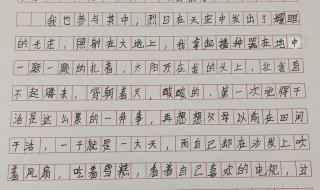 我也参与其中，烈日在天空中发出了耀眼
的光芒，照射在大地上，我拿起播种器在地中
一颗一颗的扎着，太阳顶在我的头上，让我直
不起腰来，背朝着天，酸酸的，第一次觉得干
活是这么累的一件事，再想想父母以前在田间
干活，一干就是一大天，而自己却在沙发上吹
着风扇，吃着雪糕，看着自己喜欢的电视，过